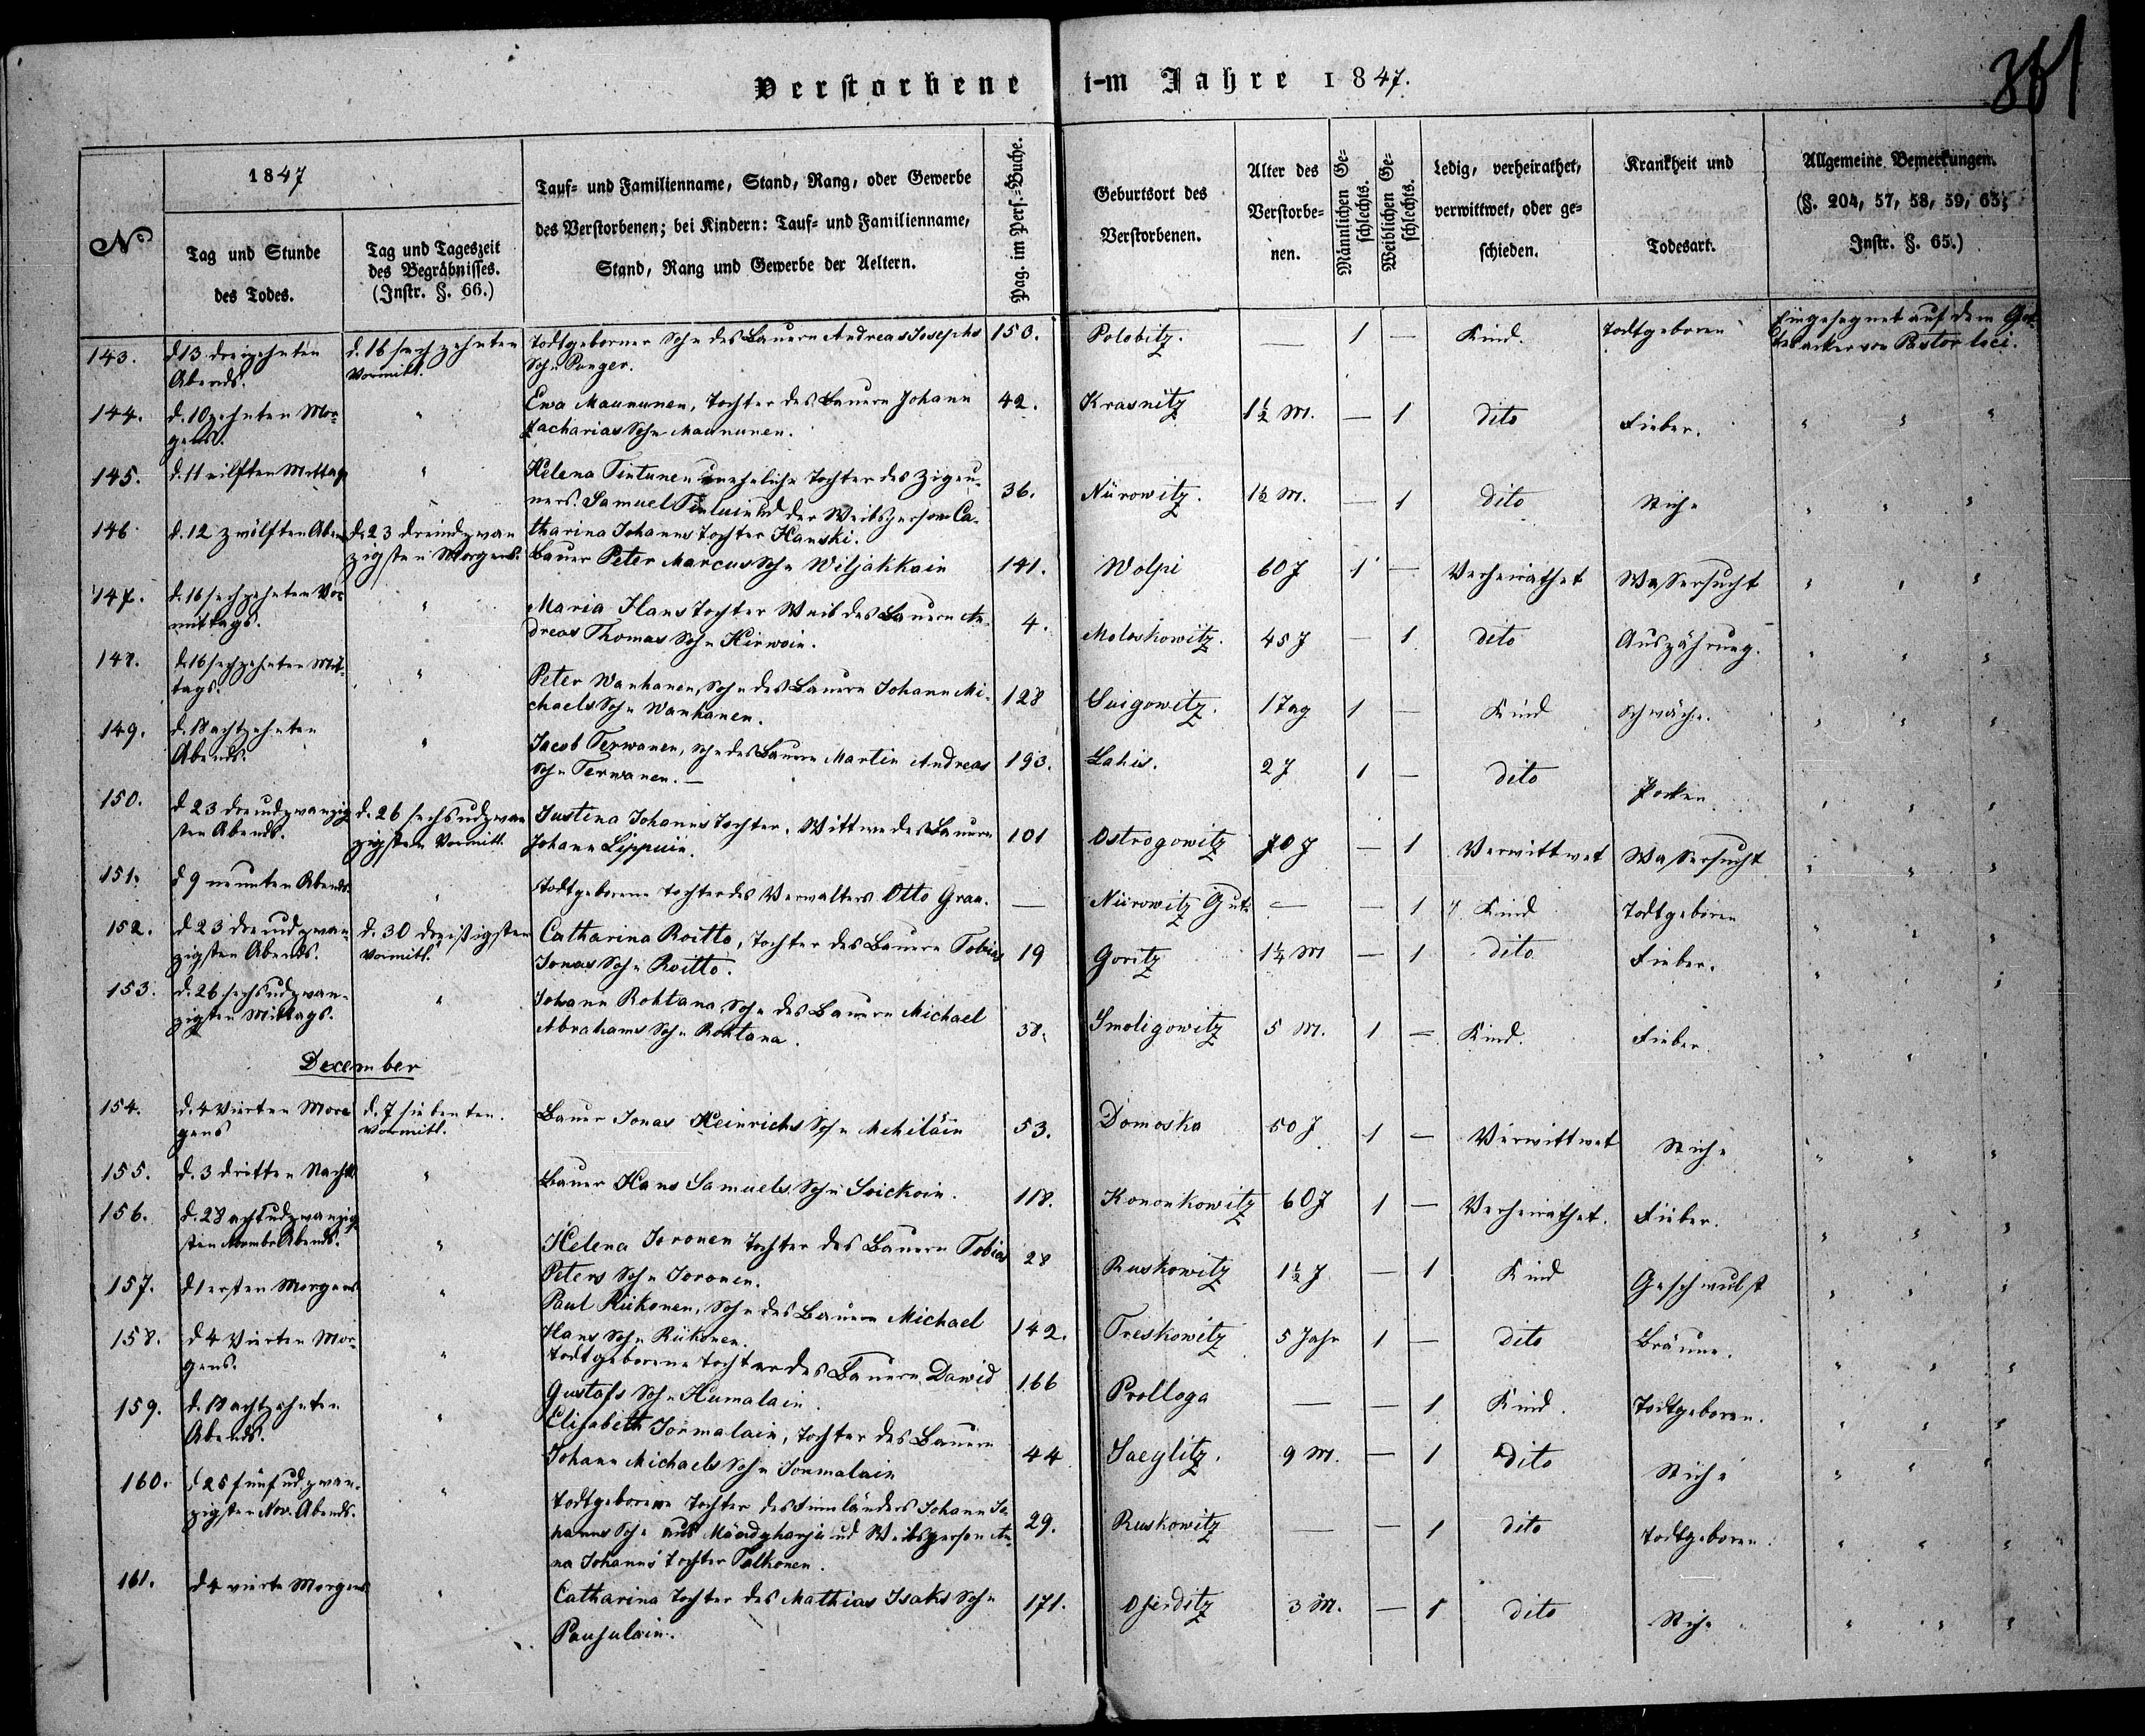 Verstorbene im Jahre 1847.
351
No
1847
Tag und Stunde
des Todes.
Tag und Tageszeit
des Begräbnisses.
(Instr. §. 66.)
Tauf- und Familienname, Stand, Rang, oder Gewerbe
des Verstorbenen; bei Kindern: Tauf- und Familienname,
Stand, Rang und Gewerbe der Aeltern.
Pag. im Pers.-Buche.
Geburtsort des
Verstorbenen.
Alter des
Verstorbe-
nen.
Männlichen Ge-
schlechts.
Weiblichen Ge-
schlechts.
Ledig, verheirathet,
verwittwet, oder ge-
schieden.
Krankheit und
Todesart.
Allgemeine Bemerkungen.
(§. 204, 57, 58, 59, 63;
Instr. §. 65.)
143. d 13 dreizehnten d. 16 sechzehnten Todtgeborner Sohn des Bauern Andreas Josephs 153. Polobitz. — 1 — Kind. Todtgeboren Eingesegnet auf dem Got-
Abends. Vormitt. Sohn Ponger. tesacker von Pastor loci.
144. d. 10 zehnten Mor- " Ewa Maununen, Tochter des Bauern Johann 42. Krasnitz 1½ M. — 1 dito Fieber. " " "
gens. Zacharias Sohn Maununen.
145. d. 11 eilften Mittag " Helena Tintunen uneheliche Tochter des Zigeu- 36. Nürowitz. 1½ M. — 1 dito Stiche " " "
ners Samuel und der Weibsperson Ca-
tharina Johanns Tochter Hanski.
146 d. 12 zwölften Abend d. 23 dreiundzwan Bauer Peter Marcus Sohn Wiljakkain 141. Wolpi 60 J 1 — Verheirathet Wassersucht " " "
zigsten Morgens.
147. d. 16 sechzehnten Vor- " Maria Hans Tochter Weib des Bauern An- 4. Moloskowitz. 45 J — 1 dito Auszährung. " " "
mittags. dreas Thomas Sohn Hirwoin.
148. d. 16 sechzehnten Mit- " Peter Wanhanen, Sohn des Bauern Johann Mi- 128 Suigowitz. 1 Tag 1 — Kind Schwäche. " " "
tags. chaels Sohn Wanhanen.
149. d. 18 achtzehnten " Jacob Terwanen, Sohn des Bauern Martin Andreas 193. Lahis. 2 J 1 — dito Pocken " " "
Abends. Sohn Terwanen. —
150. d 23 dreiundzwanzig d. 26 sechsundzwan Justina Johanns Tochter, Wittwe des Bauern 101 Ostrogowitz 70 J — 1 Verwittwet Wassersucht " " "
sten Abends. zigsten Vormitt. Johann Lippuin.
151. d 9 neunten Abends " Todtgeborene Tochter des Verwalters Otto Gran. — Nürowitz Gut — — 1 Kind Todtgeboren " " "
152. d 23 dreiundzwan- d. 30 dreißigsten Catharina Roitto, Tochter des Bauern Tobias 19 Goritz 1¼ M — 1 dito Fieber. " " "
zigsten Abends. Vormitt. Jonas Sohn Roitto.
153. d. 26 sechsundzwan- " Johann Rohtana, Sohn des Bauern Michael 58. Smoligowitz 5 M. 1 — Kind. Fieber. " " "
zigsten Mittags. Abrahams Sohn Rohtana.
December
154. d. 4 vierten Mor- d. 7 siebenten. Bauer Jonas Heinrichs Sohn Mehiläin 53. Domoska 50 J 1 — Verwittwet Stiche " " "
gens Vormitt.
155. d. 3 dritten Nachts " Bauer Hans Samuels Sohn Soickoin. 118. Kononkowitz 60 J 1 — Verheirathet. Fieber. " " "
156. d. 28 achtundzwanzig- " Helena Joronen Tochter des Bauern Tobias 28 Ruskowitz 1½ J — 1 Kind Geschwulst " " "
sten Novembr Abends. Peters Sohn Joronen.
157. d 1 ersten Morgens " Paul Riikonen, Sohn des Bauern Michael 142. Treskowitz 5 Jahr 1 — dito Bräune. " " "
Hans Sohn Riikonen.
158. d 4 vierten Mor- " Todtgeborene Tochter des Bauern Dawid 166 Prolloga — — 1 Kind. Todtgeboren. " " "
gens. Gustafs Sohn Humalain.
159. d. 18 achtzehnten " Elisabeth Jormalain, Tochter des Bauern 44 Saeglitz. 9 M. — 1 dito Stiche " " "
Abends. Johann Michaels Sohn Jormalain
160. d 25 fünfundzwan- " Todtgeborene Tochter des Finnländers Johann Jo- 29. Ruskowitz — — 1 dito Todtgeboren. " " "
zigsten Nov. Abends. hanns Sohn aus und Weibsperson An-
na Johanns Tochter Talkonen.
161. d 4 vierte Morgens " Catharina Tochter des Mathias Isaks Sohn 171. Oserditz 3 M. — 1 dito Stiche " " "
Pausulain.